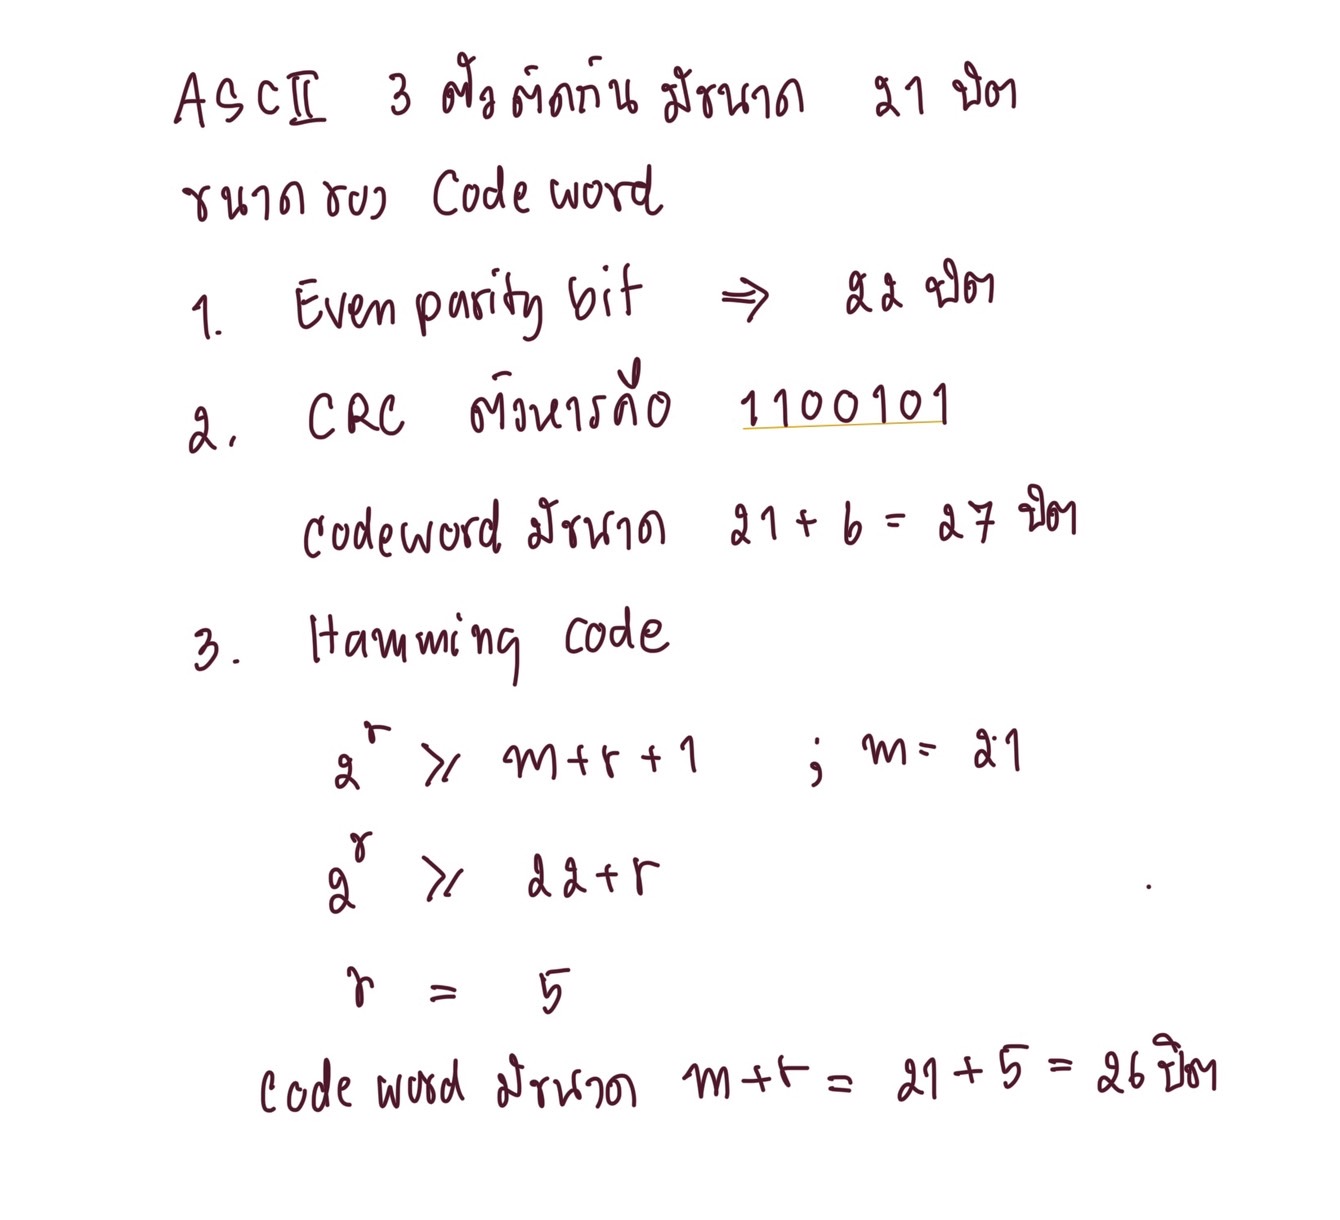 ASCII 3 ตัวติดกัน มีขนาด 21 บิต
ขนาดของ Code word
1. Even parity bit ⇒ 22 บิต
2. CRC ตัวหารคือ 1100101
codeword มีขนาด 21 + 6 = 27 บิต
3. Hamming code
2^r ≥ m + r + 1 ; m = 21
2^r ≥ 22 + r
r = 5
code word มีขนาด m + r = 21 + 5 = 26 บิต